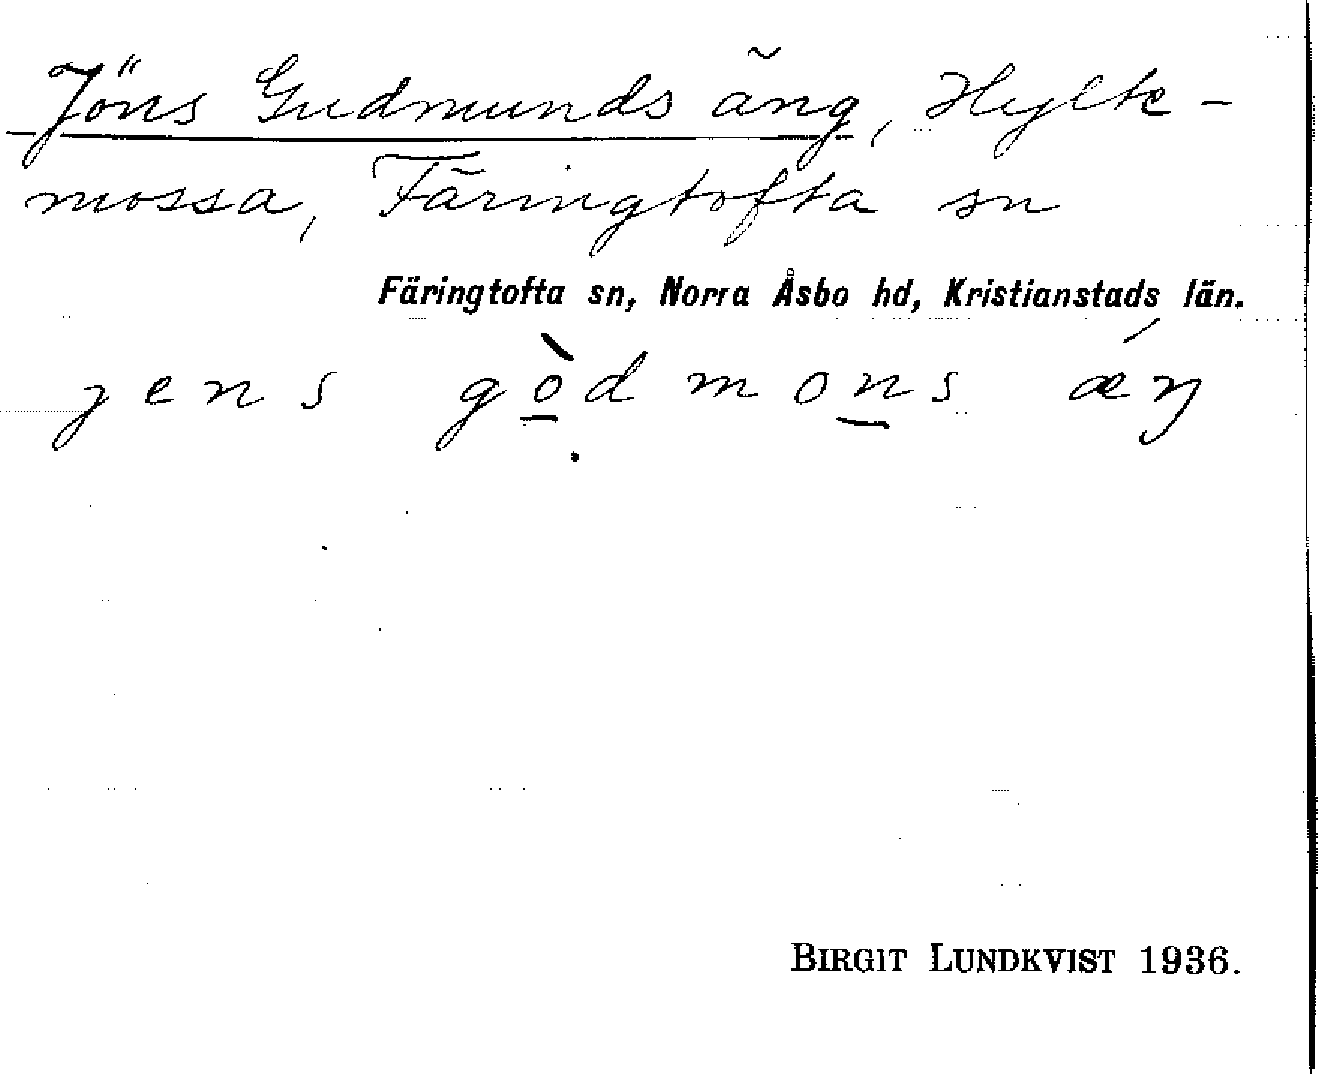 Jöns Gudmunds äng, Hylte-
mossa, Färingtofta sn
Färingtofta sn, Norra Åsbo hd, Kristianstads län.
jens gò̠dmon̠s ǽŋ
BIRGIT LUNDKVIST 1936.